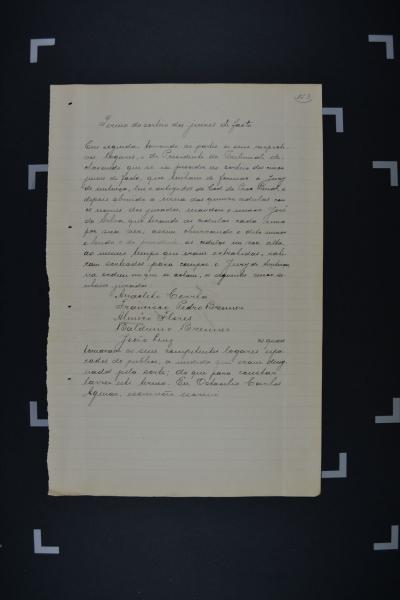 113
Termo do sorteio dos juizes de facto
Em seguida, tomando as partes os seus respecti-
vos logares, o Dr. Presidente do Tribunal de-
clarando que se ia proceder ao sorteio dos cinco
juizes de facto, que tinham de formar o Jury
de sentença, leu o artigo do Cod. do Proc. Penal, e
depois abrindo a urna das cedulas
com os nomes dos jurados, mandou o menor José
da Silva que tirasse as cedulas cada uma
por sua vez; assim observando o dito menor
e lendo o dr. presidente as cedulas em voz alta,
ao mesmo tempo que eram extrahidas, sahi-
ram sorteados para compor o Jury de sentença
na ordem em que se acham, os seguintes cinco se-
nhores jurados
Anacleto Corrêa
Francisco Pedro Brenner
Almiro Flores
Balduino Brenner
João Lenz os quaes
tomaram os seus competentes logares sepa-
rados do publico, a medida que eram desig-
nados pela sorte; do que para constar
lavrei este termo. Eu, Octavio Carlos
Aguiar, escrivão escrevi